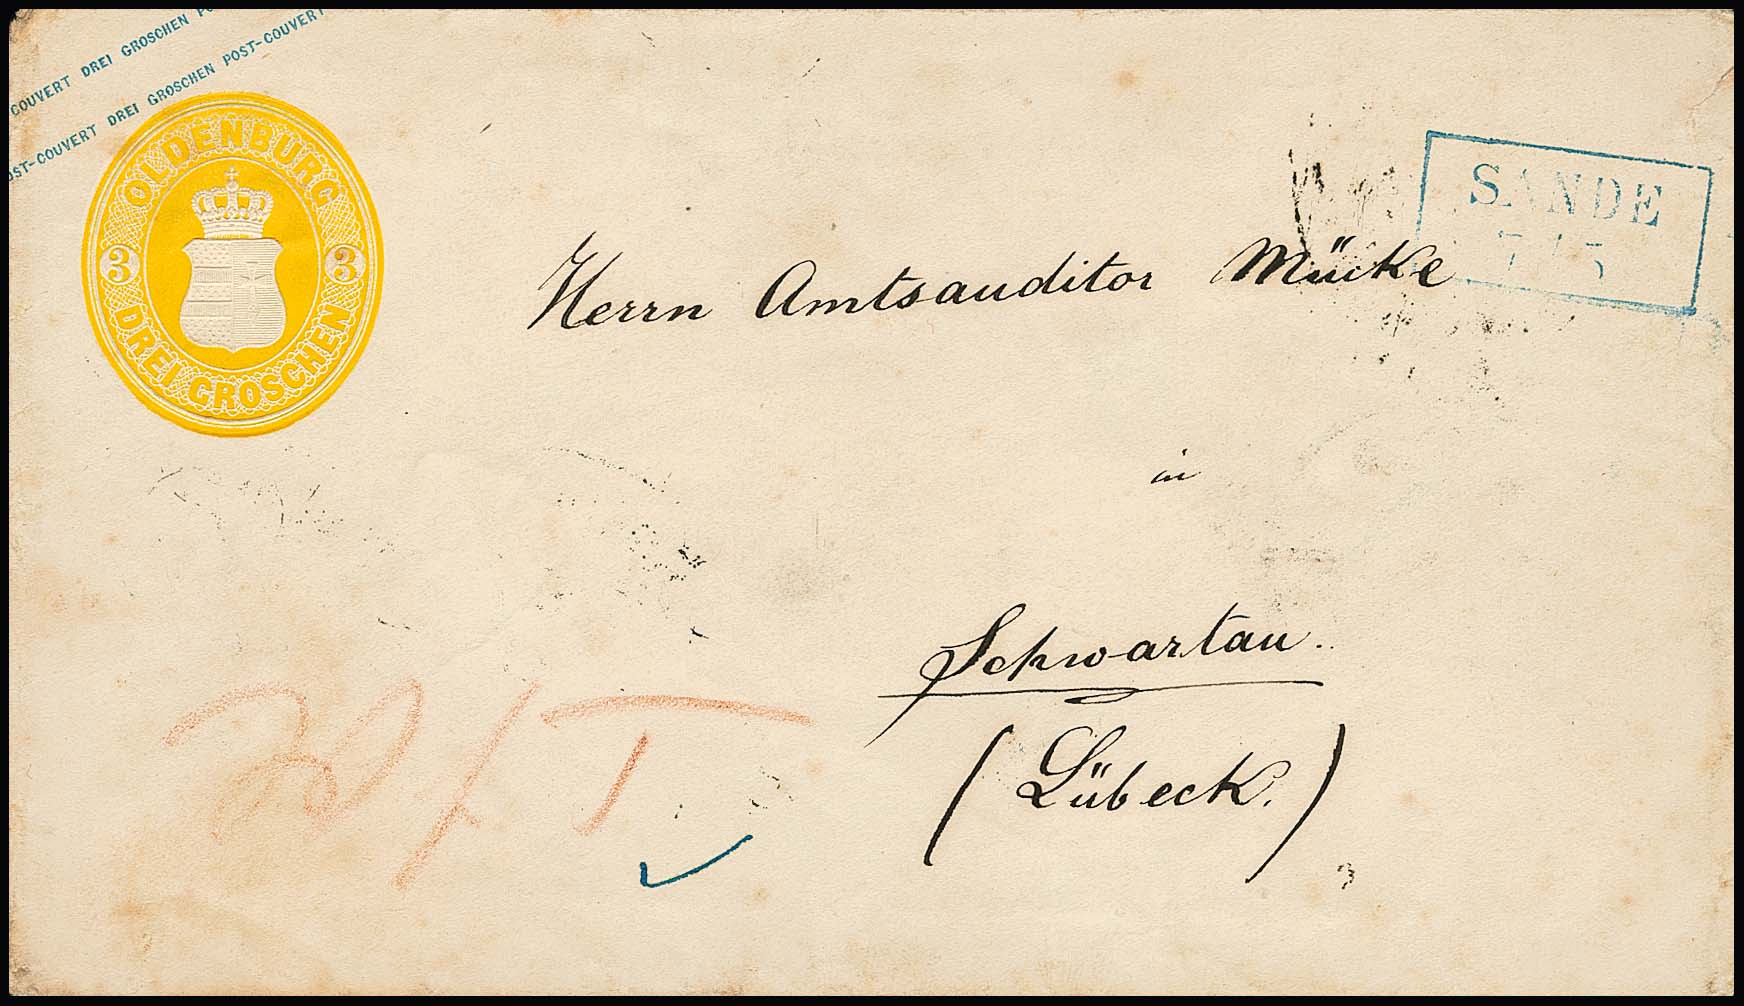 COUVERT DREI GROSCHEN
POST-COUVERT DREI GROSCHEN POST-COUVERT
OLDENBURG
3 3
DREI GROSCHEN
SANDE
Herrn Amtsauditor Mücke
in
Schwartau.
(Lübeck.)